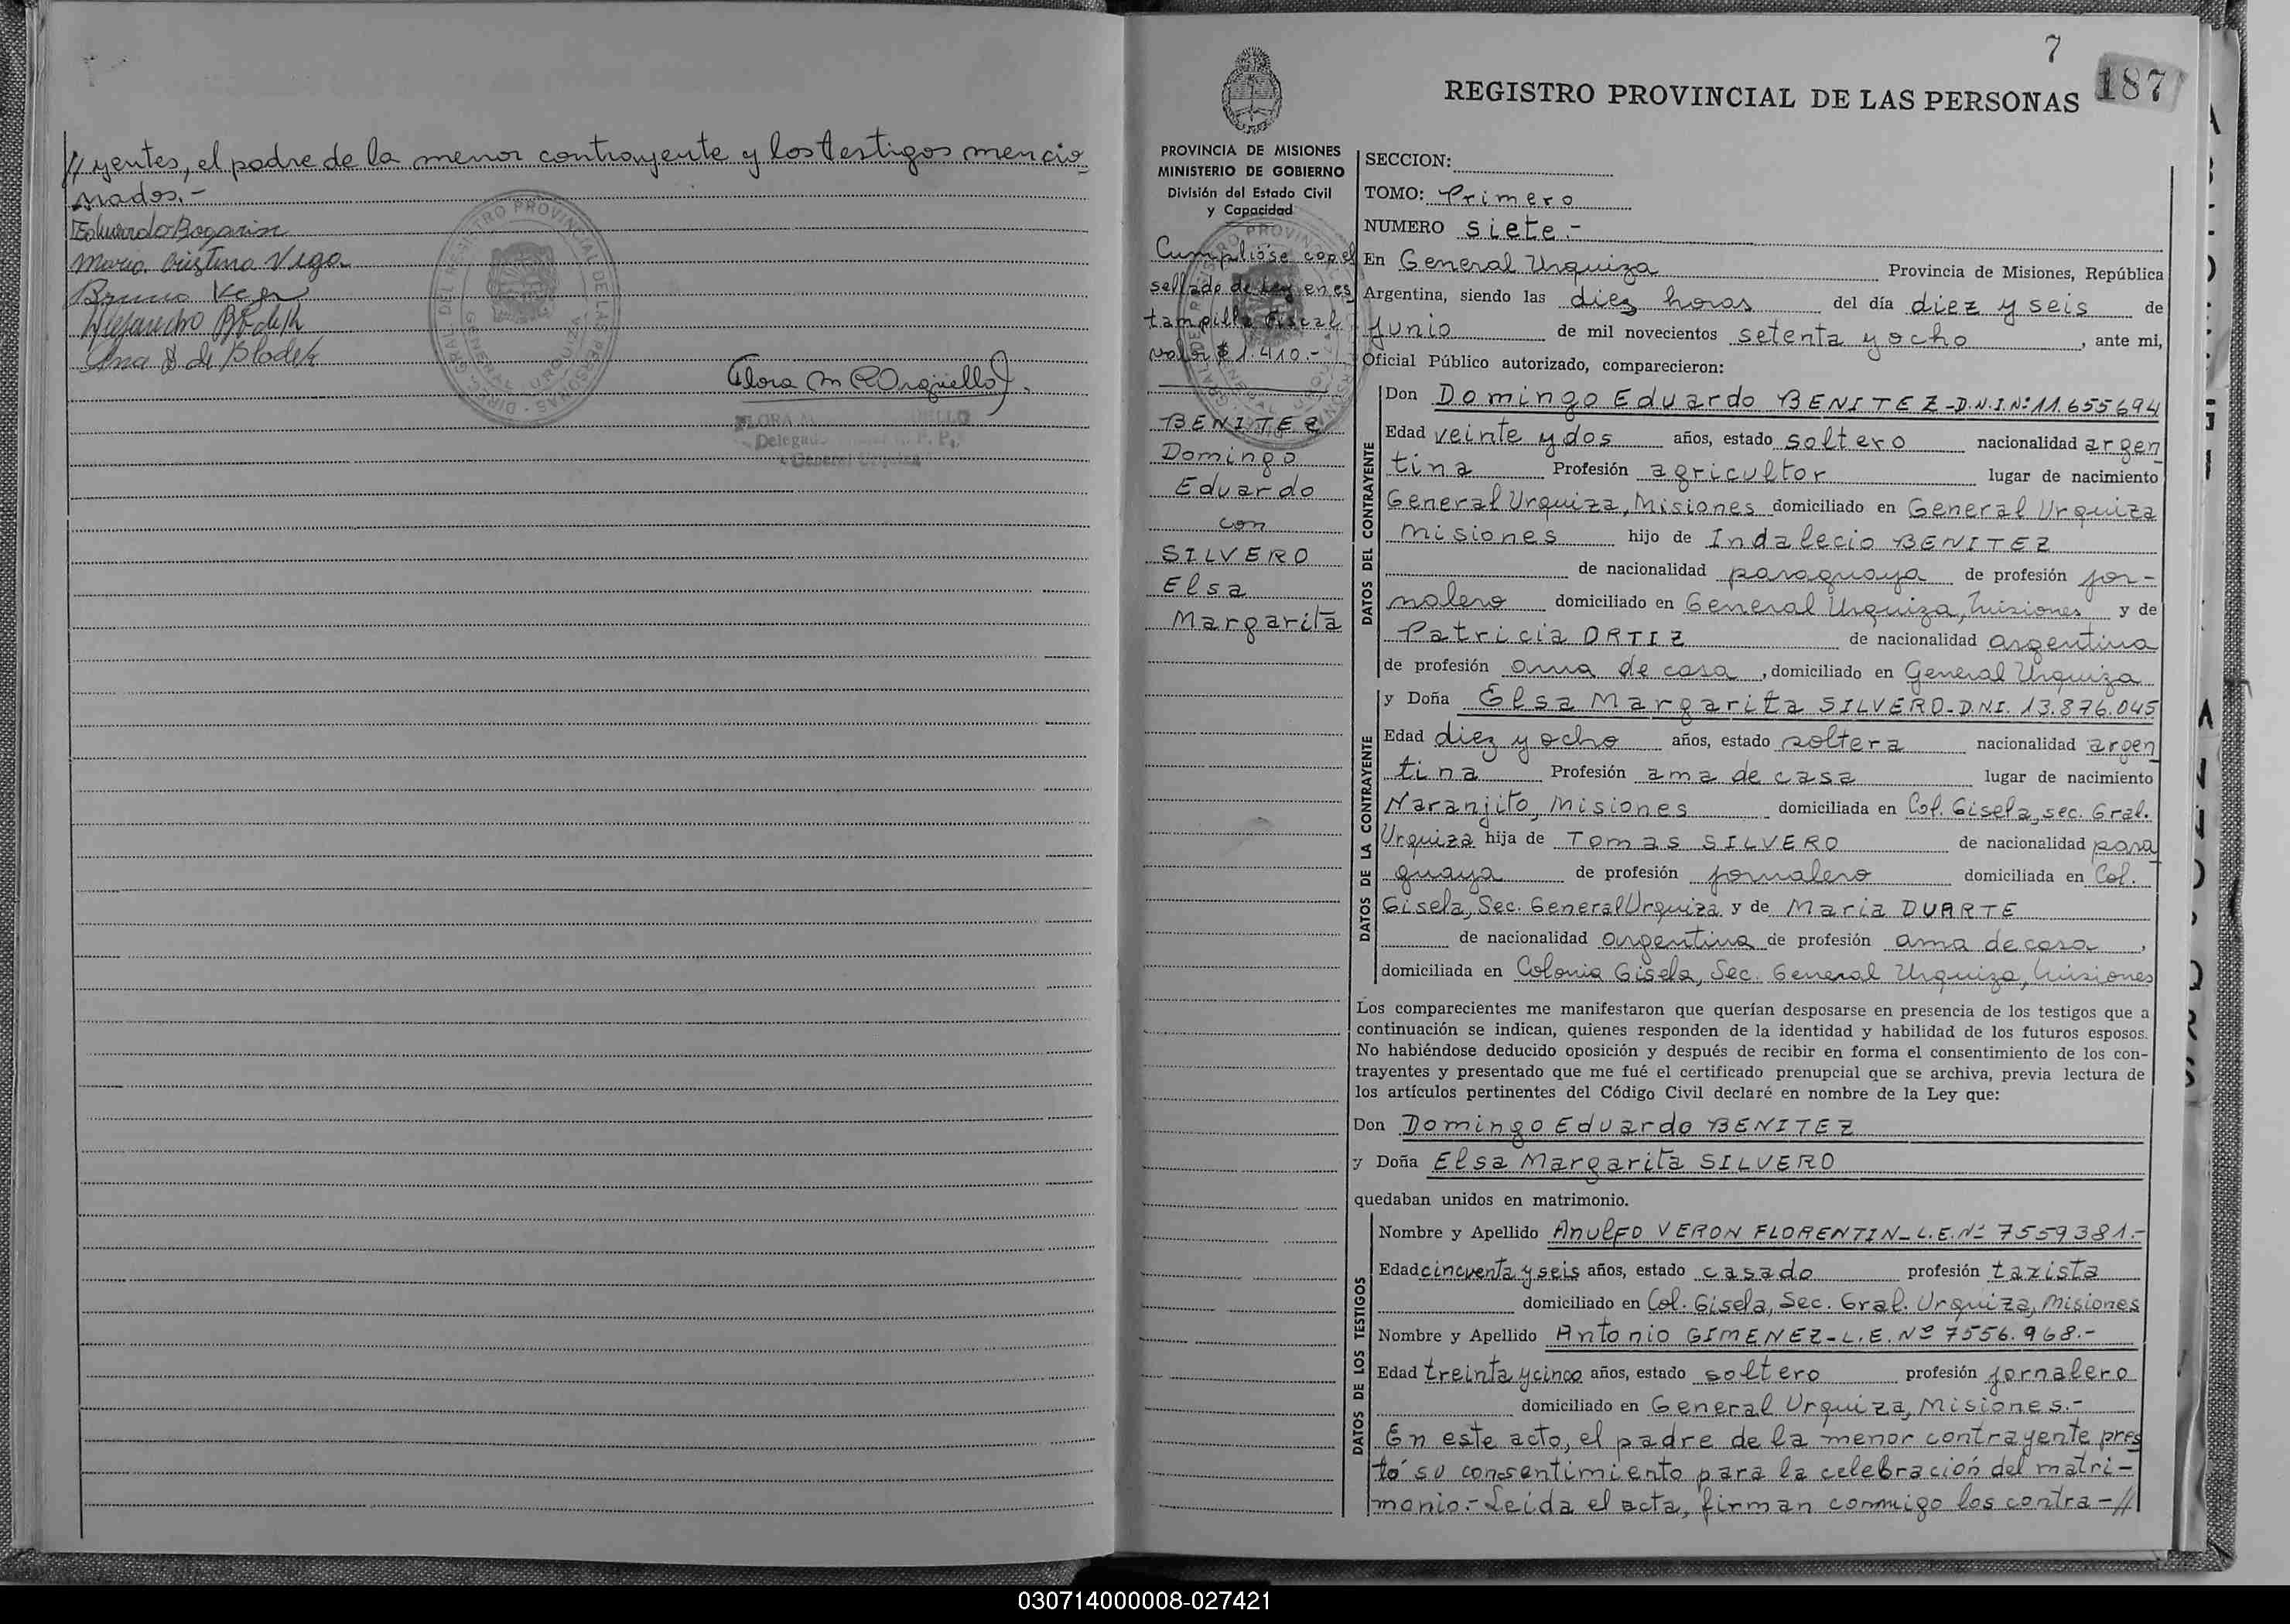 // yentes, el padre de la menor contrayente y los testigos mencio
nados.-
Eduardo Bogarin
Maria Cristina Vega
Bruno Vega
Alejandro Blodek
Ana D de Blodek
Flora M R Argüello
Delegado
General Urquiza
7
187
REGISTRO PROVINCIAL DE LAS PERSONAS
PROVINCIA DE MISIONES
MINISTERIO DE GOBIERNO
División del Estado Civil
y Capacidad
Cumplióse con el
sellado de Ley en es
tampilla fiscal
valor $ 1.410.-
BENITEZ
Domingo
Eduardo
con
SILVERO
Elsa
Margarita
SECCION:
TOMO: Primero
NUMERO siete.-
En General Urquiza Provincia de Misiones, República
Argentina, siendo las diez horas del día diez y seis de
Junio de mil novecientos setenta y ocho, ante mi,
Oficial Público autorizado, comparecieron:
DATOS DEL CONTRAYENTE
Don Domingo Eduardo BENITEZ-D.N.I.Nº 11.655694
Edad veinte y dos años, estado soltero nacionalidad argen
tina Profesión agricultor lugar de nacimiento
General Urquiza, Misiones domiciliado en General Urquiza
Misiones hijo de Indalecio BENITEZ
de nacionalidad paraguaya de profesión jor-
nalero domiciliado en General Urquiza, Misiones y de
Patricia ORTIZ de nacionalidad argentina
de profesión ama de casa, domiciliado en General Urquiza
DATOS DE LA CONTRAYENTE
y Doña Elsa Margarita SILVERO-D.N.I. 13.876.045
Edad diez y ocho años, estado soltera nacionalidad argen
tina Profesión ama de casa lugar de nacimiento
Naranjito, Misiones domiciliada en Col. Gisela, sec. Gral.
Urquiza hija de Tomas SILVERO de nacionalidad para
guaya de profesión jornalero domiciliada en Col.
Gisela, Sec. General Urquiza y de Maria DUARTE
de nacionalidad argentina de profesión ama de casa,
domiciliada en Colonia Gisela, Sec. General Urquiza, Misiones
Los comparecientes me manifestaron que querían desposarse en presencia de los testigos que a
continuación se indican, quienes responden de la identidad y habilidad de los futuros esposos.
No habiéndose deducido oposición y después de recibir en forma el consentimiento de los con-
trayentes y presentado que me fué el certificado prenupcial que se archiva, previa lectura de
los artículos pertinentes del Código Civil declaré en nombre de la Ley que:
Don Domingo Eduardo BENITEZ
y Doña Elsa Margarita SILVERO
quedaban unidos en matrimonio.
DATOS DE LOS TESTIGOS
Nombre y Apellido Anulfo VERON FLORENTIN-L.E.Nº 7559381.-
Edad cincuenta y seis años, estado casado profesión taxista
domiciliado en Col. Gisela, Sec. Gral. Urquiza, Misiones
Nombre y Apellido Antonio GIMENEZ-L.E. Nº 7556.968.-
Edad treinta y cinco años, estado soltero profesión jornalero
domiciliado en General Urquiza, Misiones.-
En este acto, el padre de la menor contrayente pres
tó su consentimiento para la celebración del matri-
monio.- Leida el acta, firman conmigo los contra-//
030714000008-027421